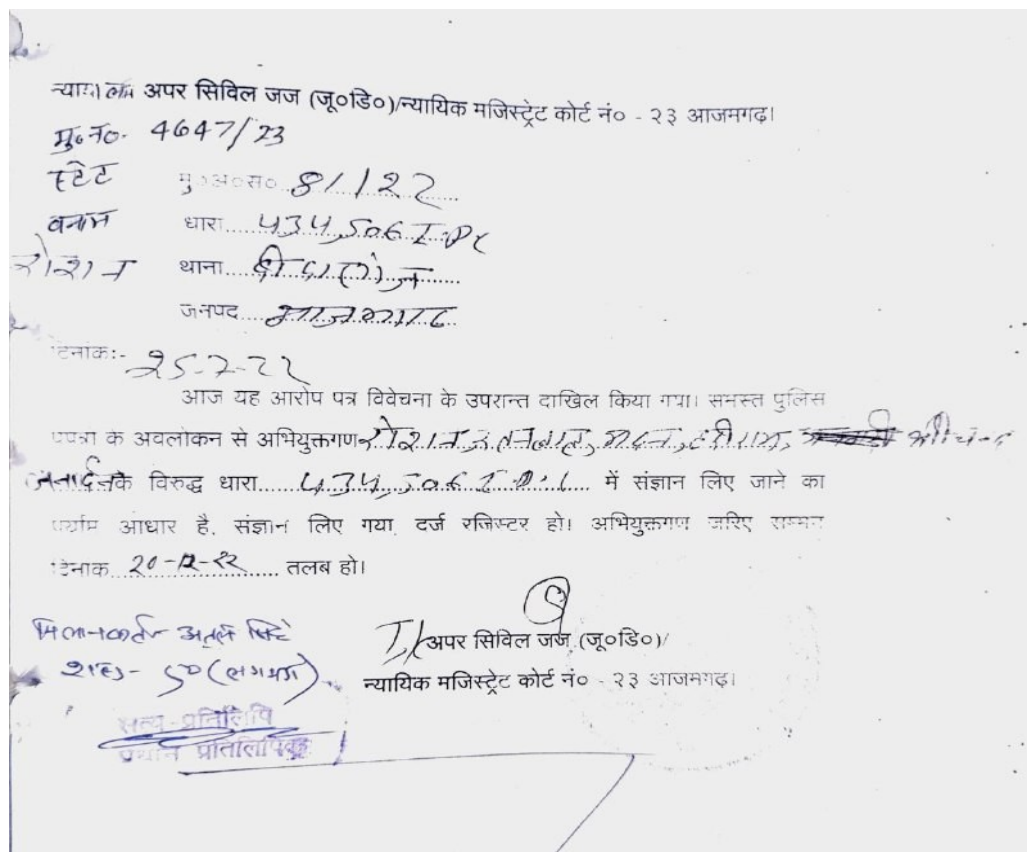 न्यायालय अपर सिविल जज (जू०डि०)/न्यायिक मजिस्ट्रेट कोर्ट नं० - २३ आजमगढ़।
मु०नं०- 4647/23
स्टेट मु०अ०स० 81/22
बनाम धारा 434, 506 I.P.C
रोशन थाना
जनपद आजमगढ़
दिनांकः- 25-7-22
आज यह आरोप पत्र विवेचना के उपरान्त दाखिल किया गया। समस्त पुलिस
प्रपत्रों के अवलोकन से अभियुक्तगण रोशन, मदन, हरीराम,
जनार्दन के विरुद्ध धारा 434, 506 I.P.C में संज्ञान लिए जाने का
पर्याप्त आधार है, संज्ञान लिए गया, दर्ज रजिस्टर हो। अभियुक्तगण जरिए सम्मन
दिनांक 20-12-22 तलब हो।
मिलानकर्ता- अतुल सिंह
शब्द- 50 (लगभग)
अपर सिविल जज (जू०डि०)/
न्यायिक मजिस्ट्रेट कोर्ट नं० - २३ आजमगढ़।
सत्य-प्रतिलिपि
प्रधान प्रतिलिपिक